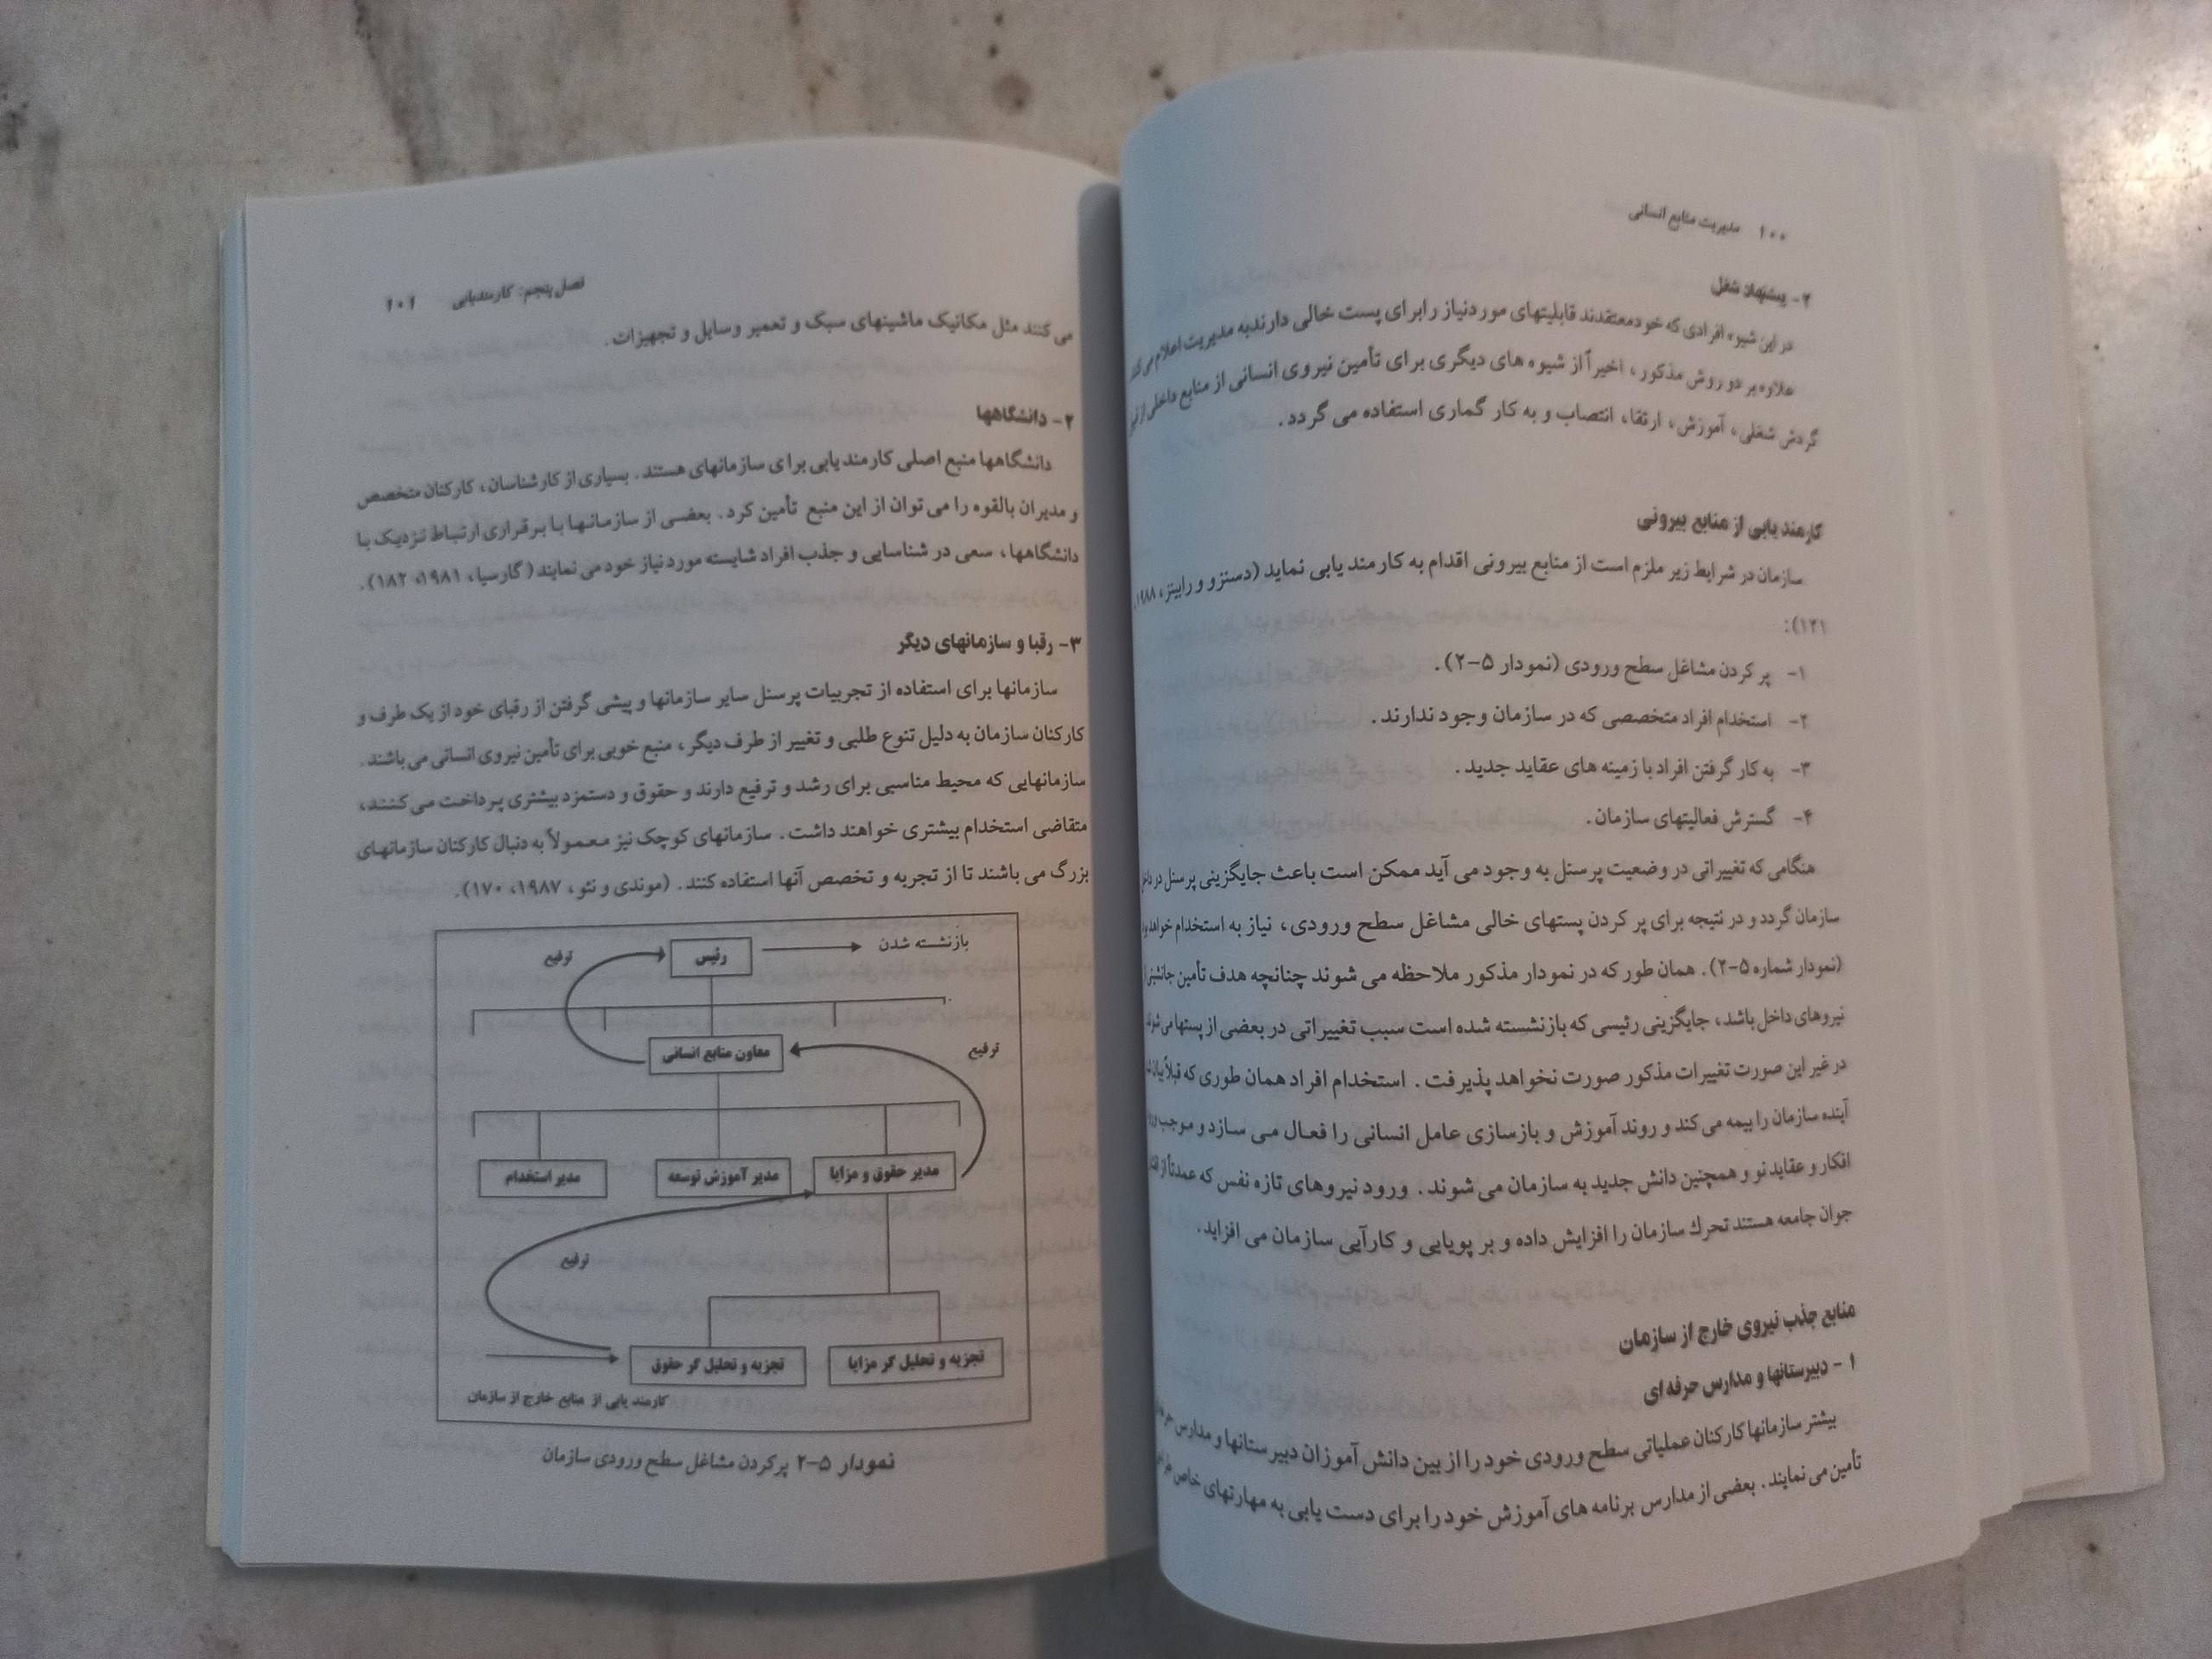 ۱۰۰ مدیریت منابع انسانی
۲- پیشنهاد شغل
در این شیوه افرادی که خودمعتقدند قابلیتهای موردنیاز رابرای پست خالی دارندبه مدیریت اعلام می کنند
علاوه بر دو روش مذکور، اخیراً از شیوه های دیگری برای تأمین نیروی انسانی از منابع داخلی از
گردش شغلی، آموزش، ارتقا، انتصاب و به کار گماری استفاده می گردد.
کارمند یابی از منابع بیرونی
سازمان در شرایط زیر ملزم است از منابع بیرونی اقدام به کارمند یابی نماید (دسنزو و رابینز، ۱۹۸۸،
۱۲۱):
۱- پر کردن مشاغل سطح ورودی (نمودار ۵-۲).
۲- استخدام افراد متخصصی که در سازمان وجود ندارند.
۳- به کار گرفتن افراد با زمینه های عقاید جدید.
۴- گسترش فعالیتهای سازمان.
هنگامی که تغییراتی در وضعیت پرسنل به وجود می آید ممکن است باعث جایگزینی پرسنل در
سازمان گردد و در نتیجه برای پر کردن پستهای خالی مشاغل سطح ورودی، نیاز به استخدام خواهد
(نمودار شماره ۵-۲). همان طور که در نمودار مذکور ملاحظه می شوند چنانچه هدف تأمین جانشینی
نیروهای داخل باشد، جایگزینی رئیسی که بازنشسته شده است سبب تغییراتی در بعضی از پستها می شود
در غیر این صورت تغییرات مذکور صورت نخواهد پذیرفت. استخدام افراد همان طوری که قبلاً بیان
آینده سازمان را بیمه می کند و روند آموزش و بازسازی عامل انسانی را فعال می سازد و موجب
افکار و عقاید نو و همچنین دانش جدید به سازمان می شوند. ورود نیروهای تازه نفس که عمدتاً از
جوان جامعه هستند تحرك سازمان را افزایش داده و بر پویایی و کارآیی سازمان می افزاید.
منابع جذب نیروی خارج از سازمان
۱ - دبیرستانها و مدارس حرفه ای
بیشتر سازمانها کارکنان عملیاتی سطح ورودی خود را از بین دانش آموزان دبیرستانها و مدارس
تأمین می نمایند. بعضی از مدارس برنامه های آموزش خود را برای دست یابی به مهارتهای خاص
فصل پنجم: کارمندیابی ۱۰۱
می کنند مثل مکانیک ماشینهای سبک و تعمیر وسایل و تجهیزات.
۲- دانشگاهها
دانشگاهها منبع اصلی کارمند یابی برای سازمانهای هستند. بسیاری از کارشناسان، کارکنان متخصص
و مدیران بالقوه را می توان از این منبع تأمین کرد. بعضی از سازمانها با برقراری ارتباط نزدیک با
دانشگاهها، سعی در شناسایی و جذب افراد شایسته مورد نیاز خود می نمایند (گارسیا، ۱۹۸۱، ۱۸۲).
۳- رقبا و سازمانهای دیگر
سازمانها برای استفاده از تجربیات پرسنل سایر سازمانها و پیشی گرفتن از رقبای خود از یک طرف و
کارکنان سازمان به دلیل تنوع طلبی و تغییر از طرف دیگر، منبع خوبی برای تأمین نیروی انسانی می باشند.
سازمانهایی که محیط مناسبی برای رشد و ترفیع دارند و حقوق و دستمزد بیشتری پرداخت می کنند،
متقاضی استخدام بیشتری خواهند داشت. سازمانهای کوچک نیز معمولاً به دنبال کارکنان سازمانهای
بزرگ می باشند تا از تجربه و تخصص آنها استفاده کنند. (موندی و نئو، ۱۹۸۷، ۱۷۰).
بازنشسته شدن
رئیس
ترفیع
معاون منابع انسانی
ترفیع
مدیر حقوق و مزایا
مدیر آموزش توسعه
مدیر استخدام
ترفیع
تجزیه و تحلیل گر مزایا
تجزیه و تحلیل گر حقوق
کارمند یابی از منابع خارج از سازمان
نمودار ۵-۲ پرکردن مشاغل سطح ورودی سازمان